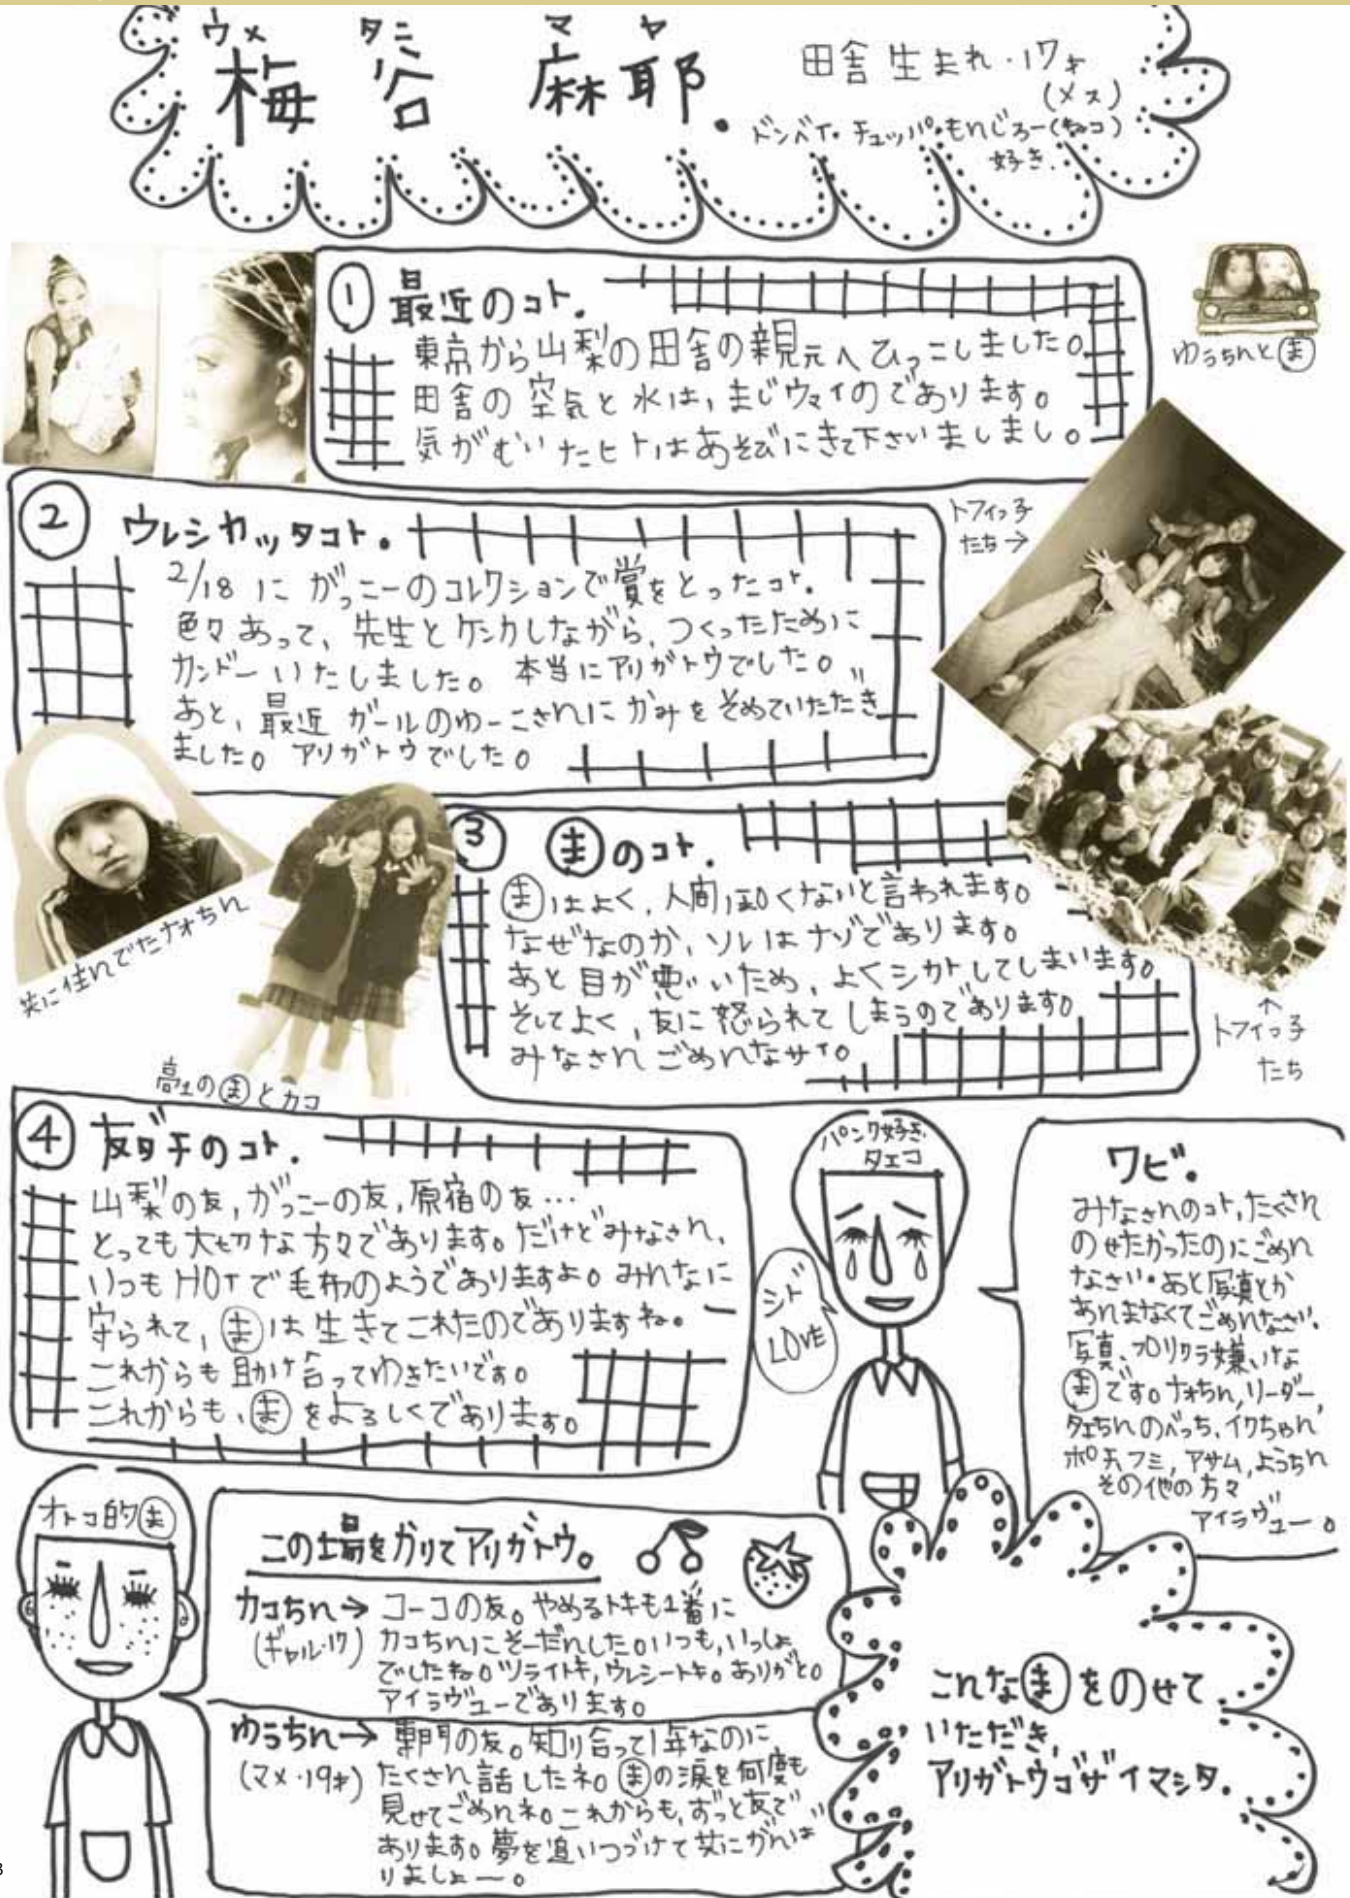 ウメ タニ マヤ
梅谷 麻耶.
田舎生まれ・17才
(メス)
ドンベイ・チュッパ・もんじろー(ネコ)
好き.
① 最近のコト.
東京から山梨の田舎の親元へひっこしました。
田舎の空気と水は、まじウマイのであります。
気がむいたヒトはあそびにきて下さいましまし。
ゆうちんとま
② ウレシカッタコト.
2/18 に がっこーのコレクションで賞をとったコト.
色々あって、先生とケンカしながら、つくったために
カンドーいたしました。本当にアリガトウでした。
あと、最近 ガールのゆーこさんにかみをそめていただき
ました。アリガトウでした。
トフィっ子
たち→
共に住んでたナオちん
高1のまとカコ
③ まのコト.
まはよく、人間ぽくないと言われます。
なぜなのか、ソレはナゾであります。
あと目が悪いため、よくシカトしてしまいます。
そしてよく、友に怒られてしまうのであります。
みなさんごめんなサイ。
↑
トフィっ子
たち
④ 友ダチのコト.
山梨の友、がっこーの友、原宿の友…
とっても大切な方々であります。だけどみなさん、
いつもHOTで毛布のようでありますよ。みんなに
守られて、まは生きてこれたのでありますね。
これからも助け合ってゆきたいです。
これからも、まをよろしくであります。
パンク好き
タエコ
シド
LOVE
ワビ.
みなさんのコト、たくさん
のせたかったのにごめん
なさい。あと写真とか
あんまなくてごめんなさい。
写真、プリクラ嫌いな
まです。ナオちん、リーダー、
タエちん のべっち、イクちゃん
ポチ、フミ、アサム、ようちん
その他の方々
アイラヴュー。
オトコ的ま
この場をかりてアリガトウ。
カコちん→ コーコの友。やめるトキも1番に
(ギャル・17) カコちんにそーだんした。いつも、いっしょ
でしたね。ツライトキ、ウレシートキ。ありがと。
アイラヴューであります。
ゆうちん→ 専門の友。知り合って1年なのに
(マメ・19才) たくさん話したネ。まの涙を何度も
見せてごめんネ。これからも、ずっと友で
あります。夢を追いつづけて共にがんば
りましょー。
こんなまをのせて
いただき、
アリガトウゴザイマシタ.
3